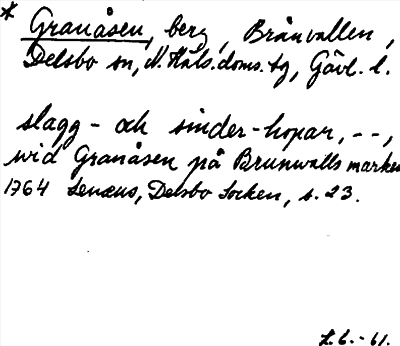 * Granåsen, berg, Brånvallen,
Delsbo sn, N. Häls. doms. tg, Gävl. l.
slagg- och sinder-hopar, - -,
wid Granåsen på Brunwalls marken
1764 Lenæus, Delsbo Socken, s. 23.
L.L. -61.